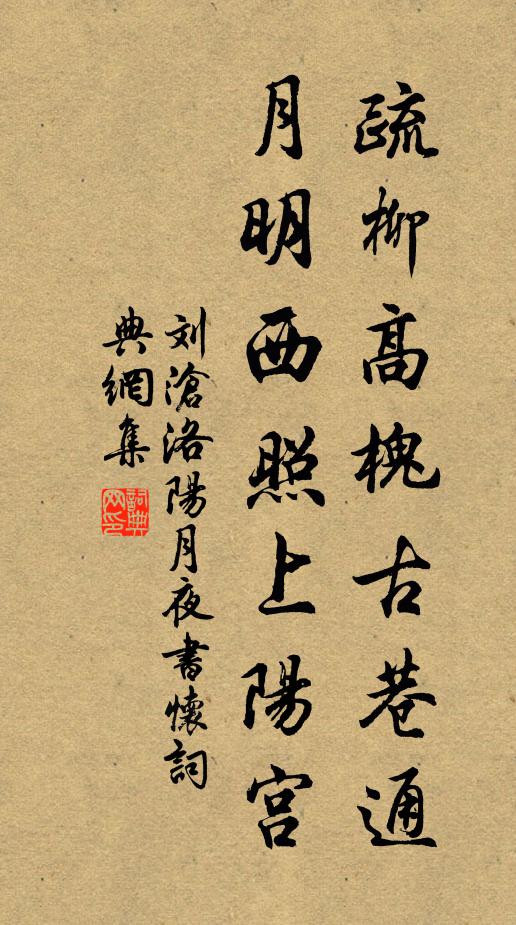 疏柳高槐古巷通
月明西照上陽宮
刘滄洛陽月夜書懷詞
典網集
詞典
网印